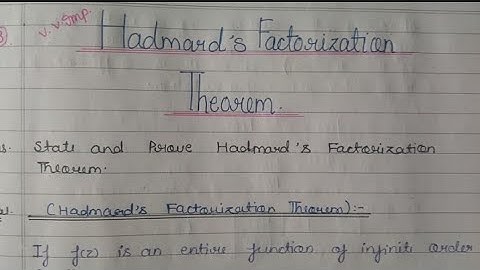 V. V. Imp.
Hadmard's Factorization
Theorem.
State and Prove Hadmard's Factorization
Theorem.
(Hadmard's Factorization Theorem):-
If f(z) is an entire function of infinite order